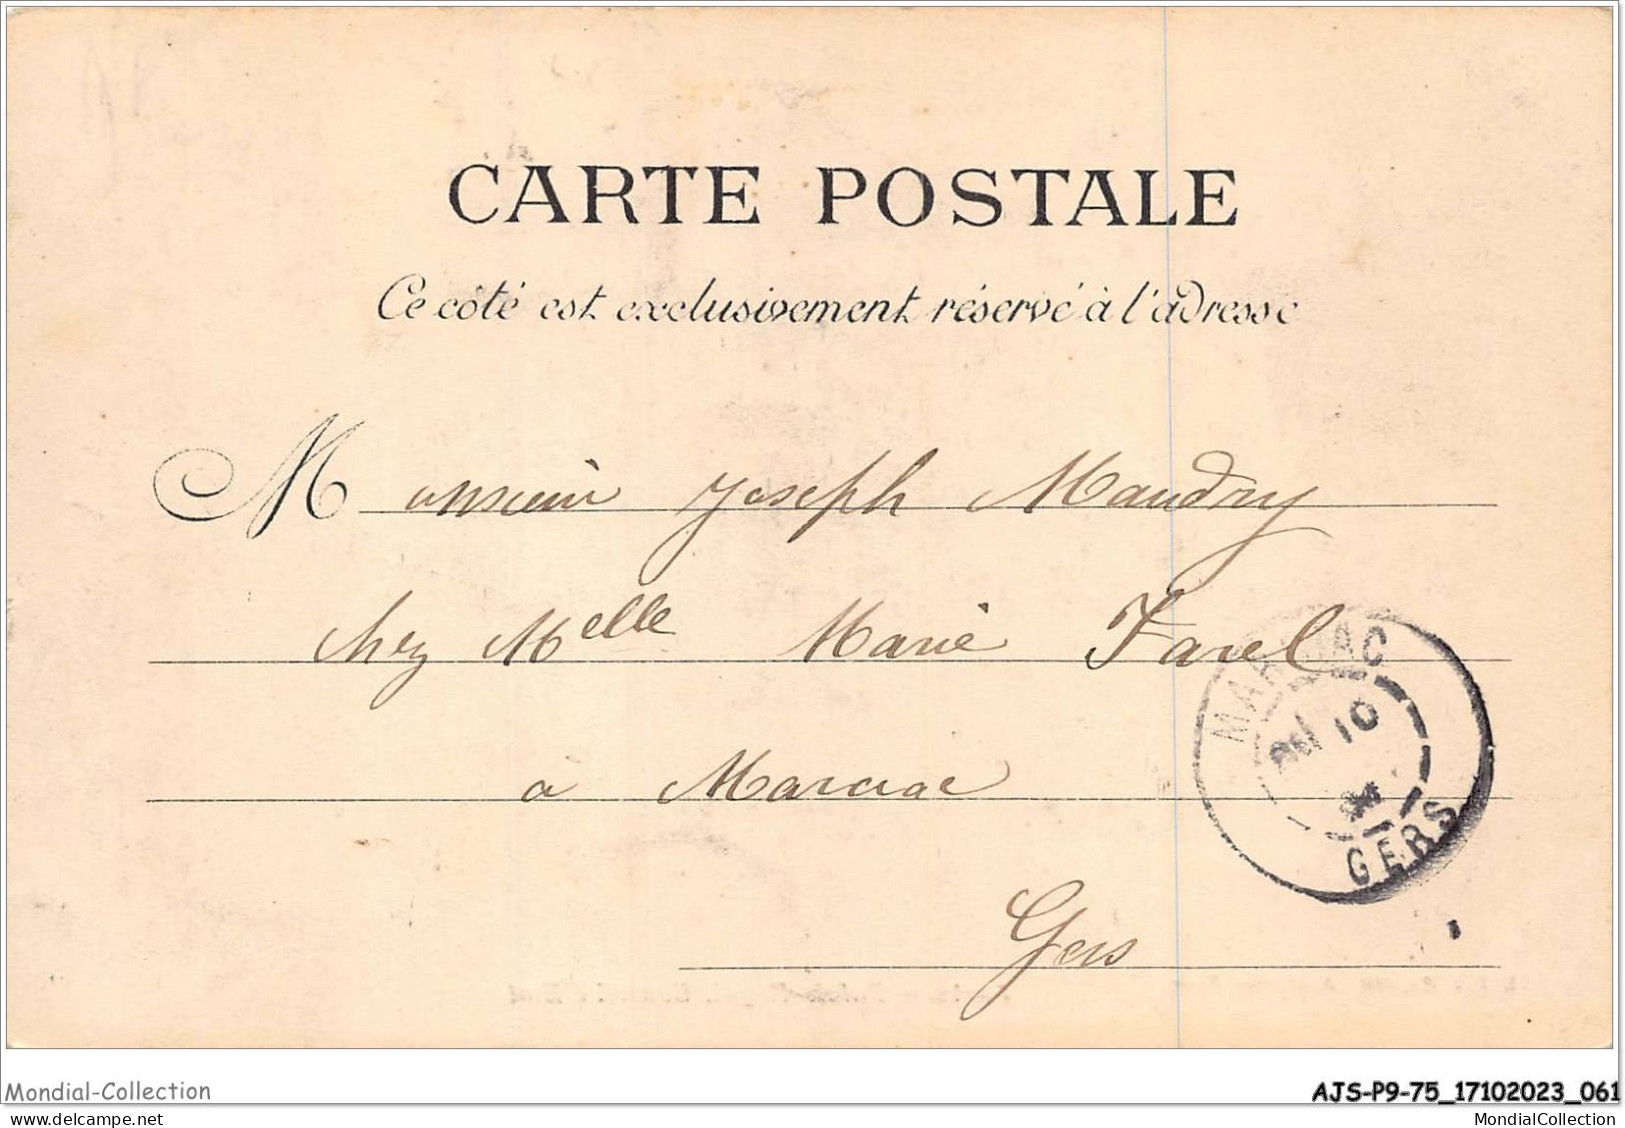 CARTE POSTALE
Ce côté est exclusivement réservé à l'adresse
Monsieur Joseph Maudry
chez Melle Marie Farel
à Marciac
Gers
MARCIAC
10
GERS
Mondial-Collection
AJS-P9-75_17102023_061
MondialCollection